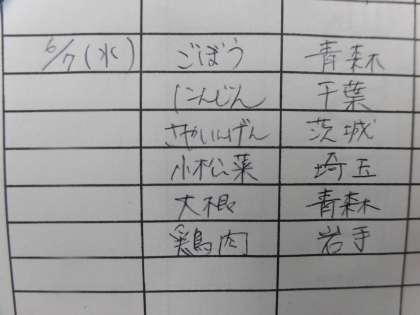 6/7(水) ごぼう 青森
にんじん 千葉
さやいんげん 茨城
小松菜 埼玉
大根 青森
鶏肉 岩手